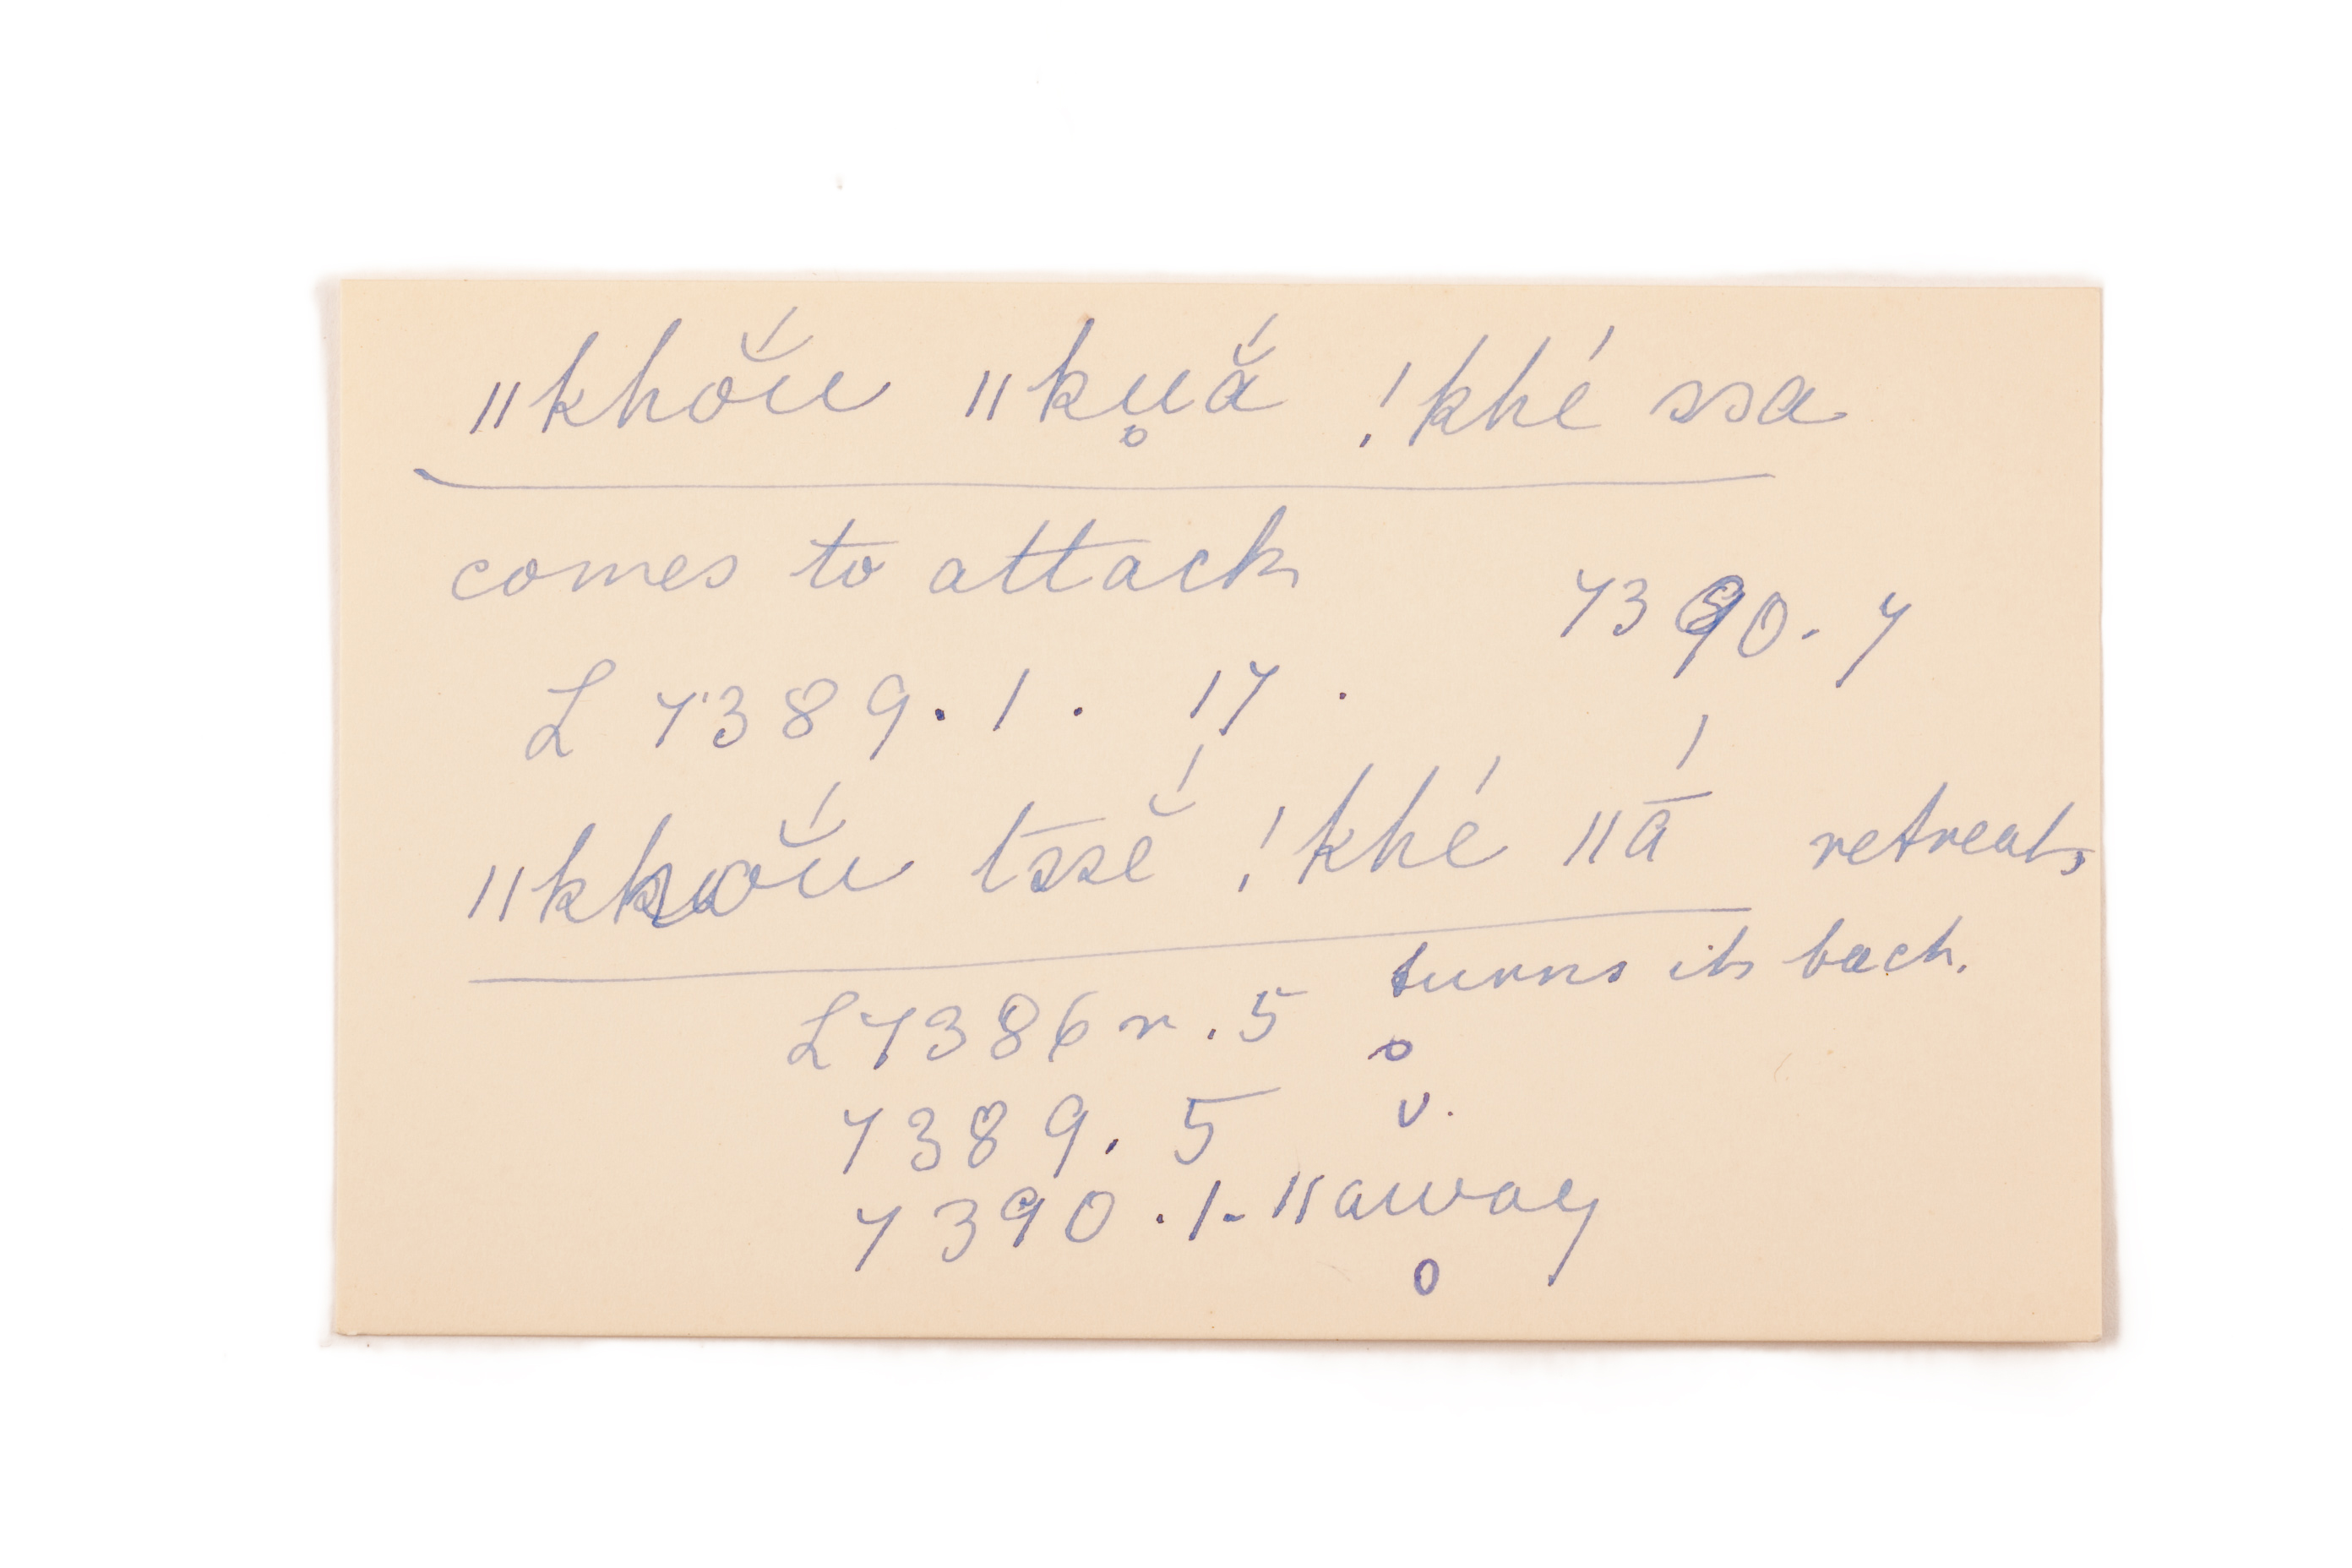 ǁkhṓ̆u ǁku̥ắ !khé ssa
comes to attack
7390. 7
L 7389. 1. 17.
ǁkhṓ̆u tssĕ́ !khé ǁā́ retreats
turns its back.
L 7386 r. 5 o
7389. 5 v.
7390. 1. ǁ away
o